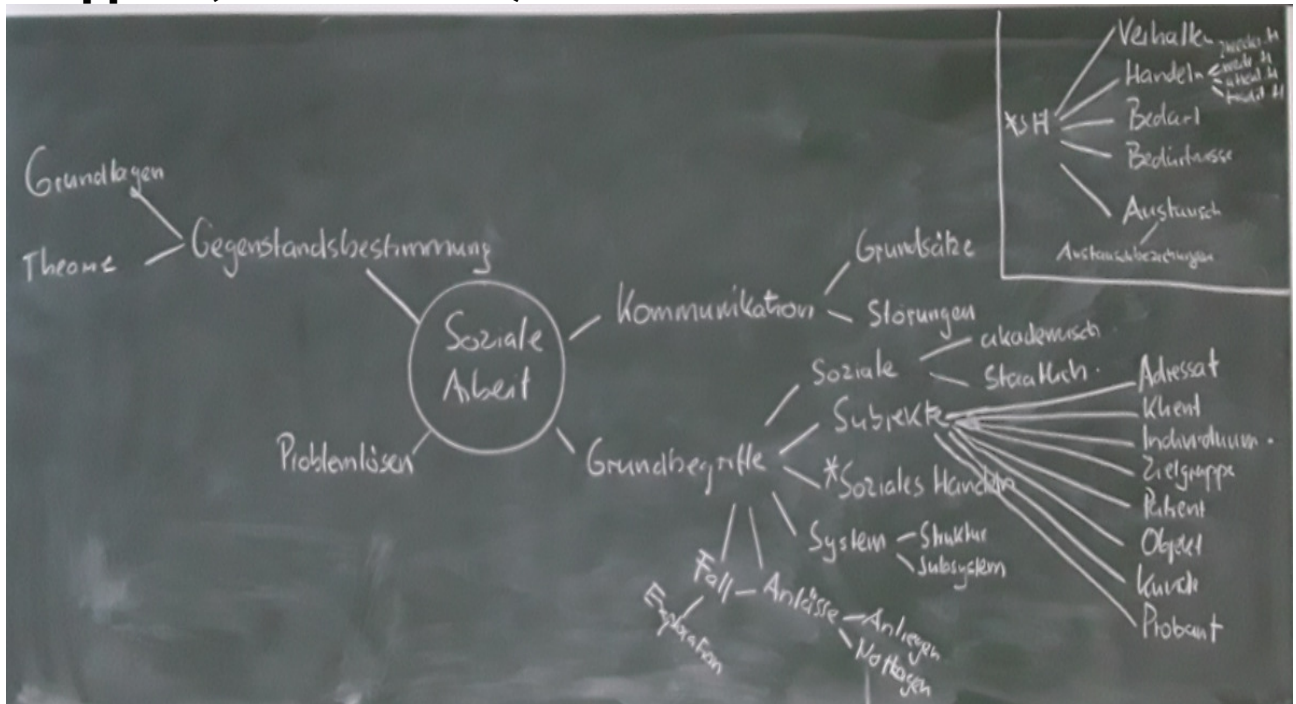 Grundlagen
Theorie
Gegenstandsbestimmung
Soziale
Arbeit
Problemlösen
Kommunikation
Grundsätze
Störungen
Grundbegriffe
Soziale
akademisch
Staatlich
Subjekte
Adressat
Klient
Individuum
Zielgruppe
Patient
Objekt
Kunde
Probant
*Soziales Handeln
System
Struktur
Subsystem
Fall
Exploration
Anlässe
Anliegen
Notlagen
*SH
Verhalten
Handeln
Bedarf
Bedürfnisse
Austausch
Austauschbeziehungen